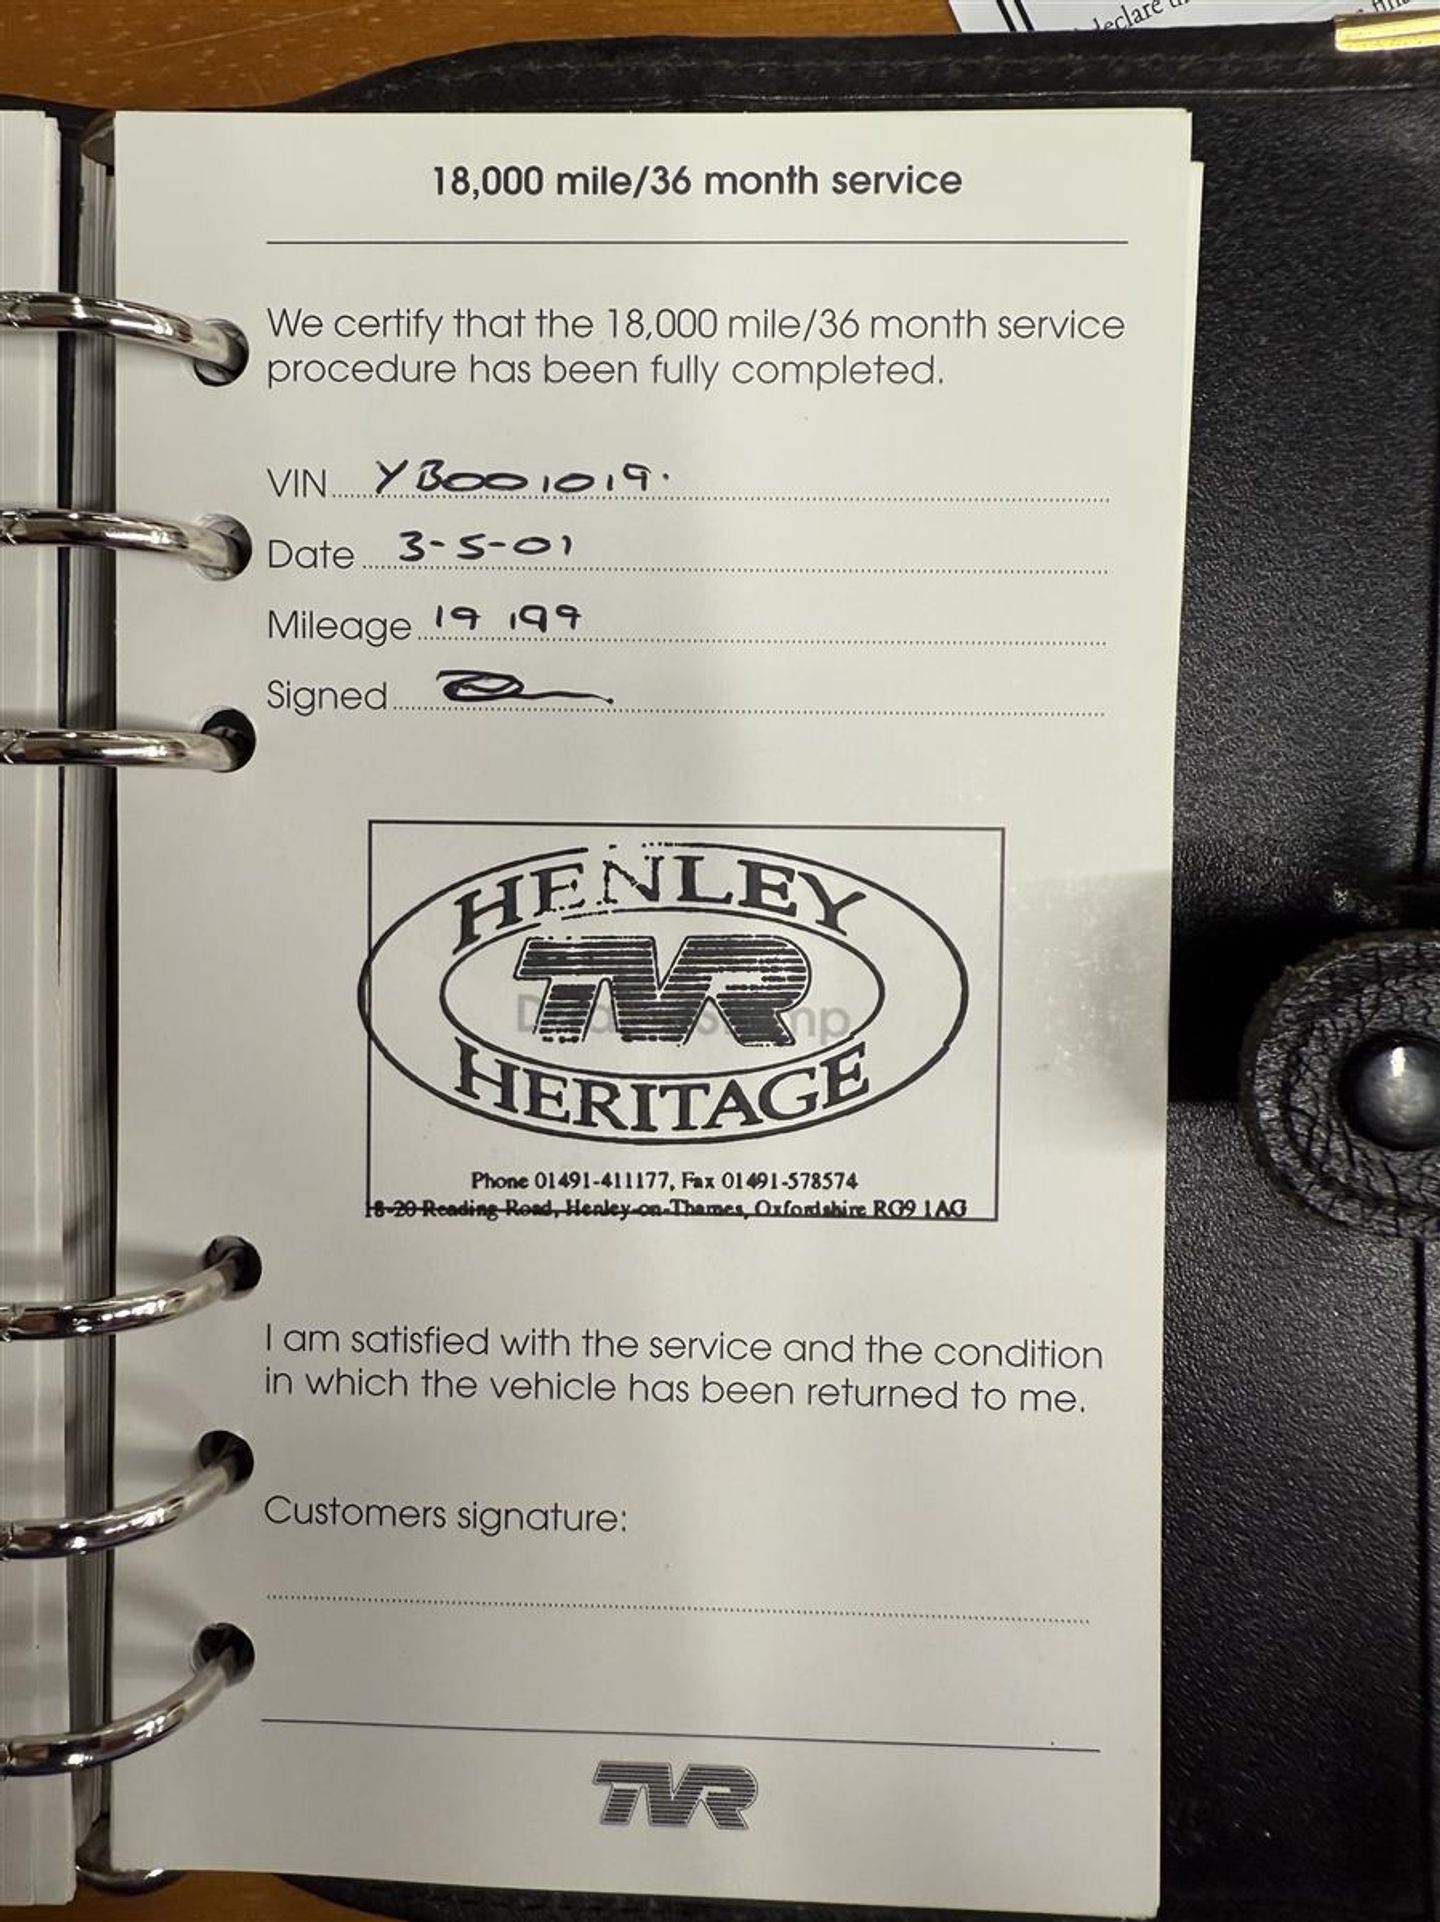 declare
18,000 mile/36 month service
We certify that the 18,000 mile/36 month service
procedure has been fully completed.
VIN YB001019.
Date 3-5-01
Mileage 19 199
Signed
HENLEY
TVR
HERITAGE
Phone 01491-411177, Fax 01491-578574
18-20 Reading Road, Henley-on-Thames, Oxfordshire RG9 1AG
I am satisfied with the service and the condition
in which the vehicle has been returned to me.
Customers signature:
TVR